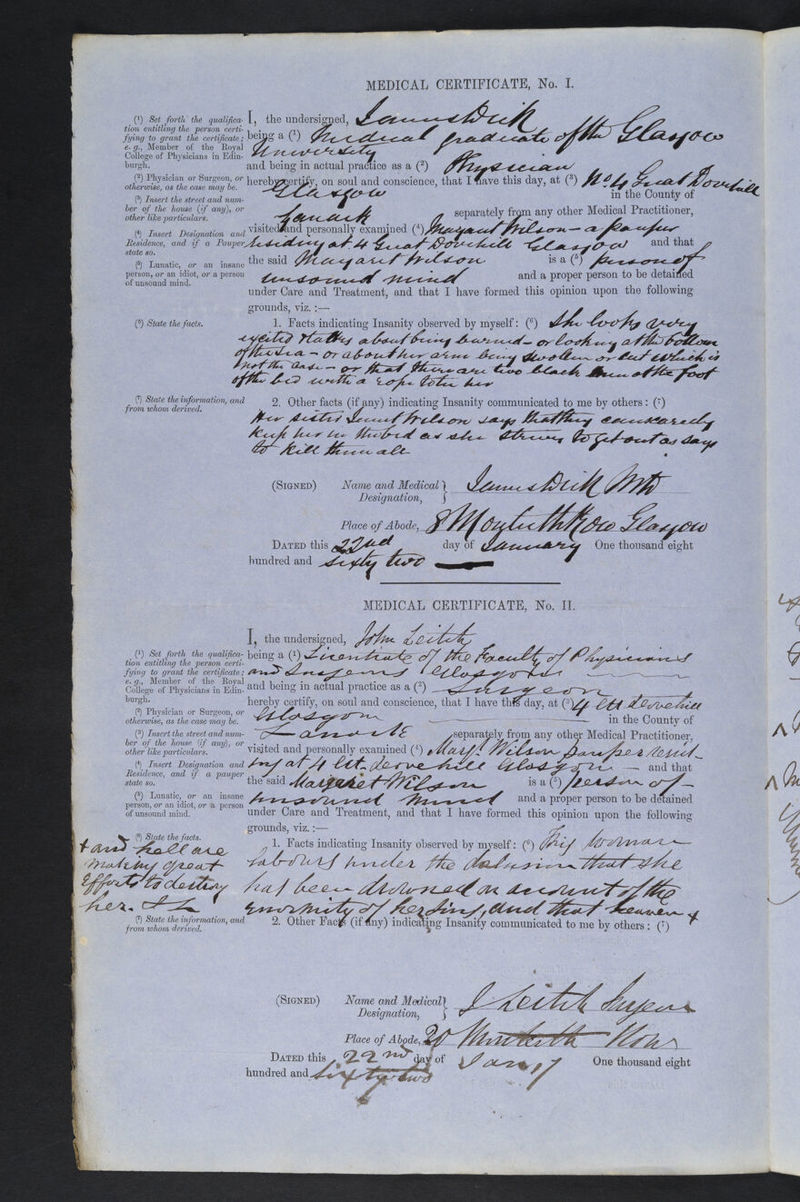 MEDICAL CERTIFICATE, No. I.
(¹) Set forth the qualifica-
tion entitling the person certi-
fying to grant the certificate;
e. g., Member of the Royal
College of Physicians in Edin-
burgh.
(²) Physician or Surgeon, or
otherwise, as the case may be.
(³) Insert the street and num-
ber of the house (if any), or
other like particulars.
(⁴) Insert Designation and
Residence, and if a Pauper
state so.
(⁵) Lunatic, or an insane
person, or an idiot, or a person
of unsound mind.
(⁶) State the facts.
(⁷) State the information, and
from whom derived.
I, the undersigned, James Dick
being a (¹) Medical graduate of the Glasgow
University
and being in actual practice as a (²) Physician
hereby certify, on soul and conscience, that I have this day, at (³) No 4 Great Dovehill
Glasgow in the County of
Lanark separately from any other Medical Practitioner,
visited and personally examined (⁴) Margaret Wilson - a pauper
residing at 4 Great Dovehill Glasgow and that
the said Margaret Wilson is a (⁵) person of
unsound mind and a proper person to be detained
under Care and Treatment, and that I have formed this opinion upon the following
grounds, viz.:—
1. Facts indicating Insanity observed by myself: (⁶) She looks very
excited & talks about being burned - or looking at the bottom
of the sea - or about her arm being swollen or cut which is
not the case - or that there are two black men at the foot
of the bed with a rope to tie her
2. Other facts (if any) indicating Insanity communicated to me by others: (⁷)
Her sister Janet Wilson says that they can scarcely
keep her in the bed as she strives to get out as says
to kill them all
(SIGNED) Name and Medical Designation, James Dick MD
Place of Abode, 8 Monteith Row Glasgow
DATED this 22nd day of January One thousand eight
hundred and sixty two
MEDICAL CERTIFICATE, No. II.
(¹) Set forth the qualifica-
tion entitling the person certi-
fying to grant the certificate;
e. g., Member of the Royal
College of Physicians in Edin-
burgh.
(²) Physician or Surgeon, or
otherwise, as the case may be.
(³) Insert the street and num-
ber of the house (if any), or
other like particulars.
(⁴) Insert Designation and
Residence, and if a pauper
state so.
(⁵) Lunatic, or an insane
person, or an idiot, or a person
of unsound mind.
(⁶) State the facts.
+ and hell are
making great
efforts to destroy
her.
(⁷) State the information, and
from whom derived.
I, the undersigned, John Leitch
being a (¹) Licentiate of the Faculty of Physicians
and Surgeons Glasgow
and being in actual practice as a (²) Surgeon
hereby certify, on soul and conscience, that I have this day, at (³) 4 Gt Dovehill
Glasgow in the County of
Lanark separately from any other Medical Practitioner,
visited and personally examined (⁴) Margt Wilson pauper resid-
ing at 4 Gt. Dovehill Glasgow and that
the said Margaret Wilson is a (⁵) person of
unsound mind and a proper person to be detained
under Care and Treatment, and that I have formed this opinion upon the following
grounds, viz.:—
1. Facts indicating Insanity observed by myself: (⁶) This woman
labours under the delusion that she
has been drowned on account of the
enormity of her sins, and that heaven +
2. Other Facts (if any) indicating Insanity communicated to me by others: (⁷)
(SIGNED) Name and Medical Designation, J Leitch Surgeon
Place of Abode, 20 Monteith Row
DATED this 22nd day of Jany One thousand eight
hundred and sixty two